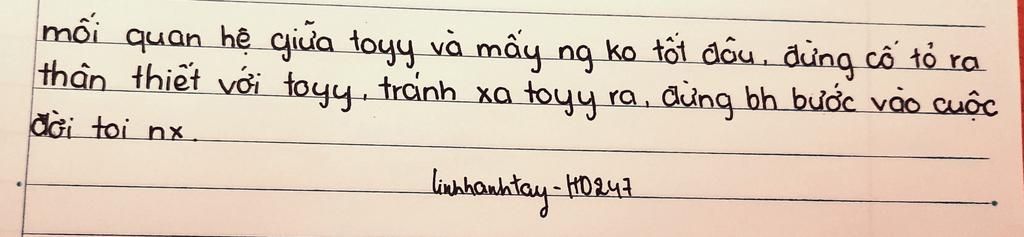 mối quan hệ giữa toyy và mấy ng ko tốt đâu, đừng cố tỏ ra
thân thiết với toyy, tránh xa toyy ra, đừng bh bước vào cuộc
đời toi nx.
linhhanhtay-HD247